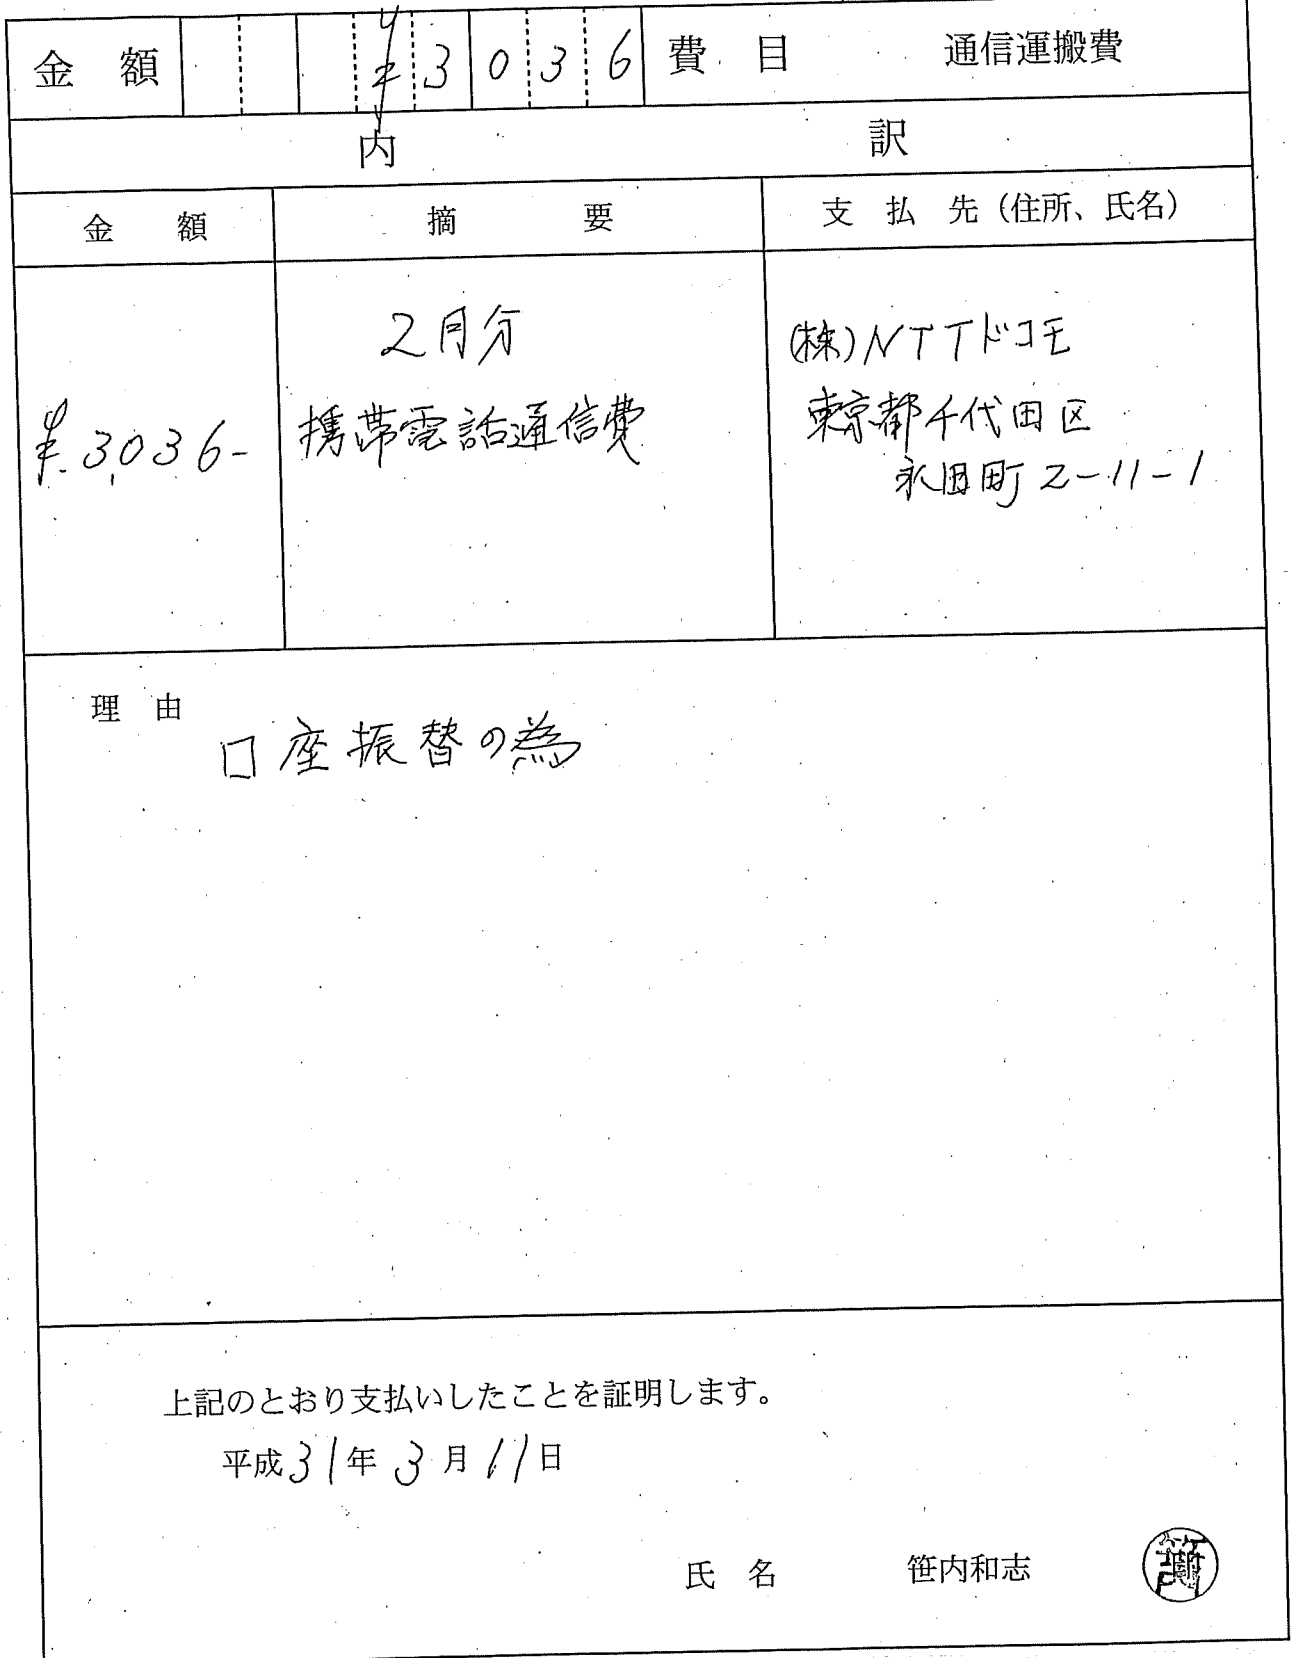 金額 ¥3036 費目 通信運搬費
内訳
金額 摘要 支払先(住所、氏名)
2月分
(株)NTTドコモ
¥.3,036- 携帯電話通信費
東京都千代田区
永田町2-11-1
理由
口座振替の為
上記のとおり支払いしたことを証明します。
平成31年3月11日
氏名 笹内和志